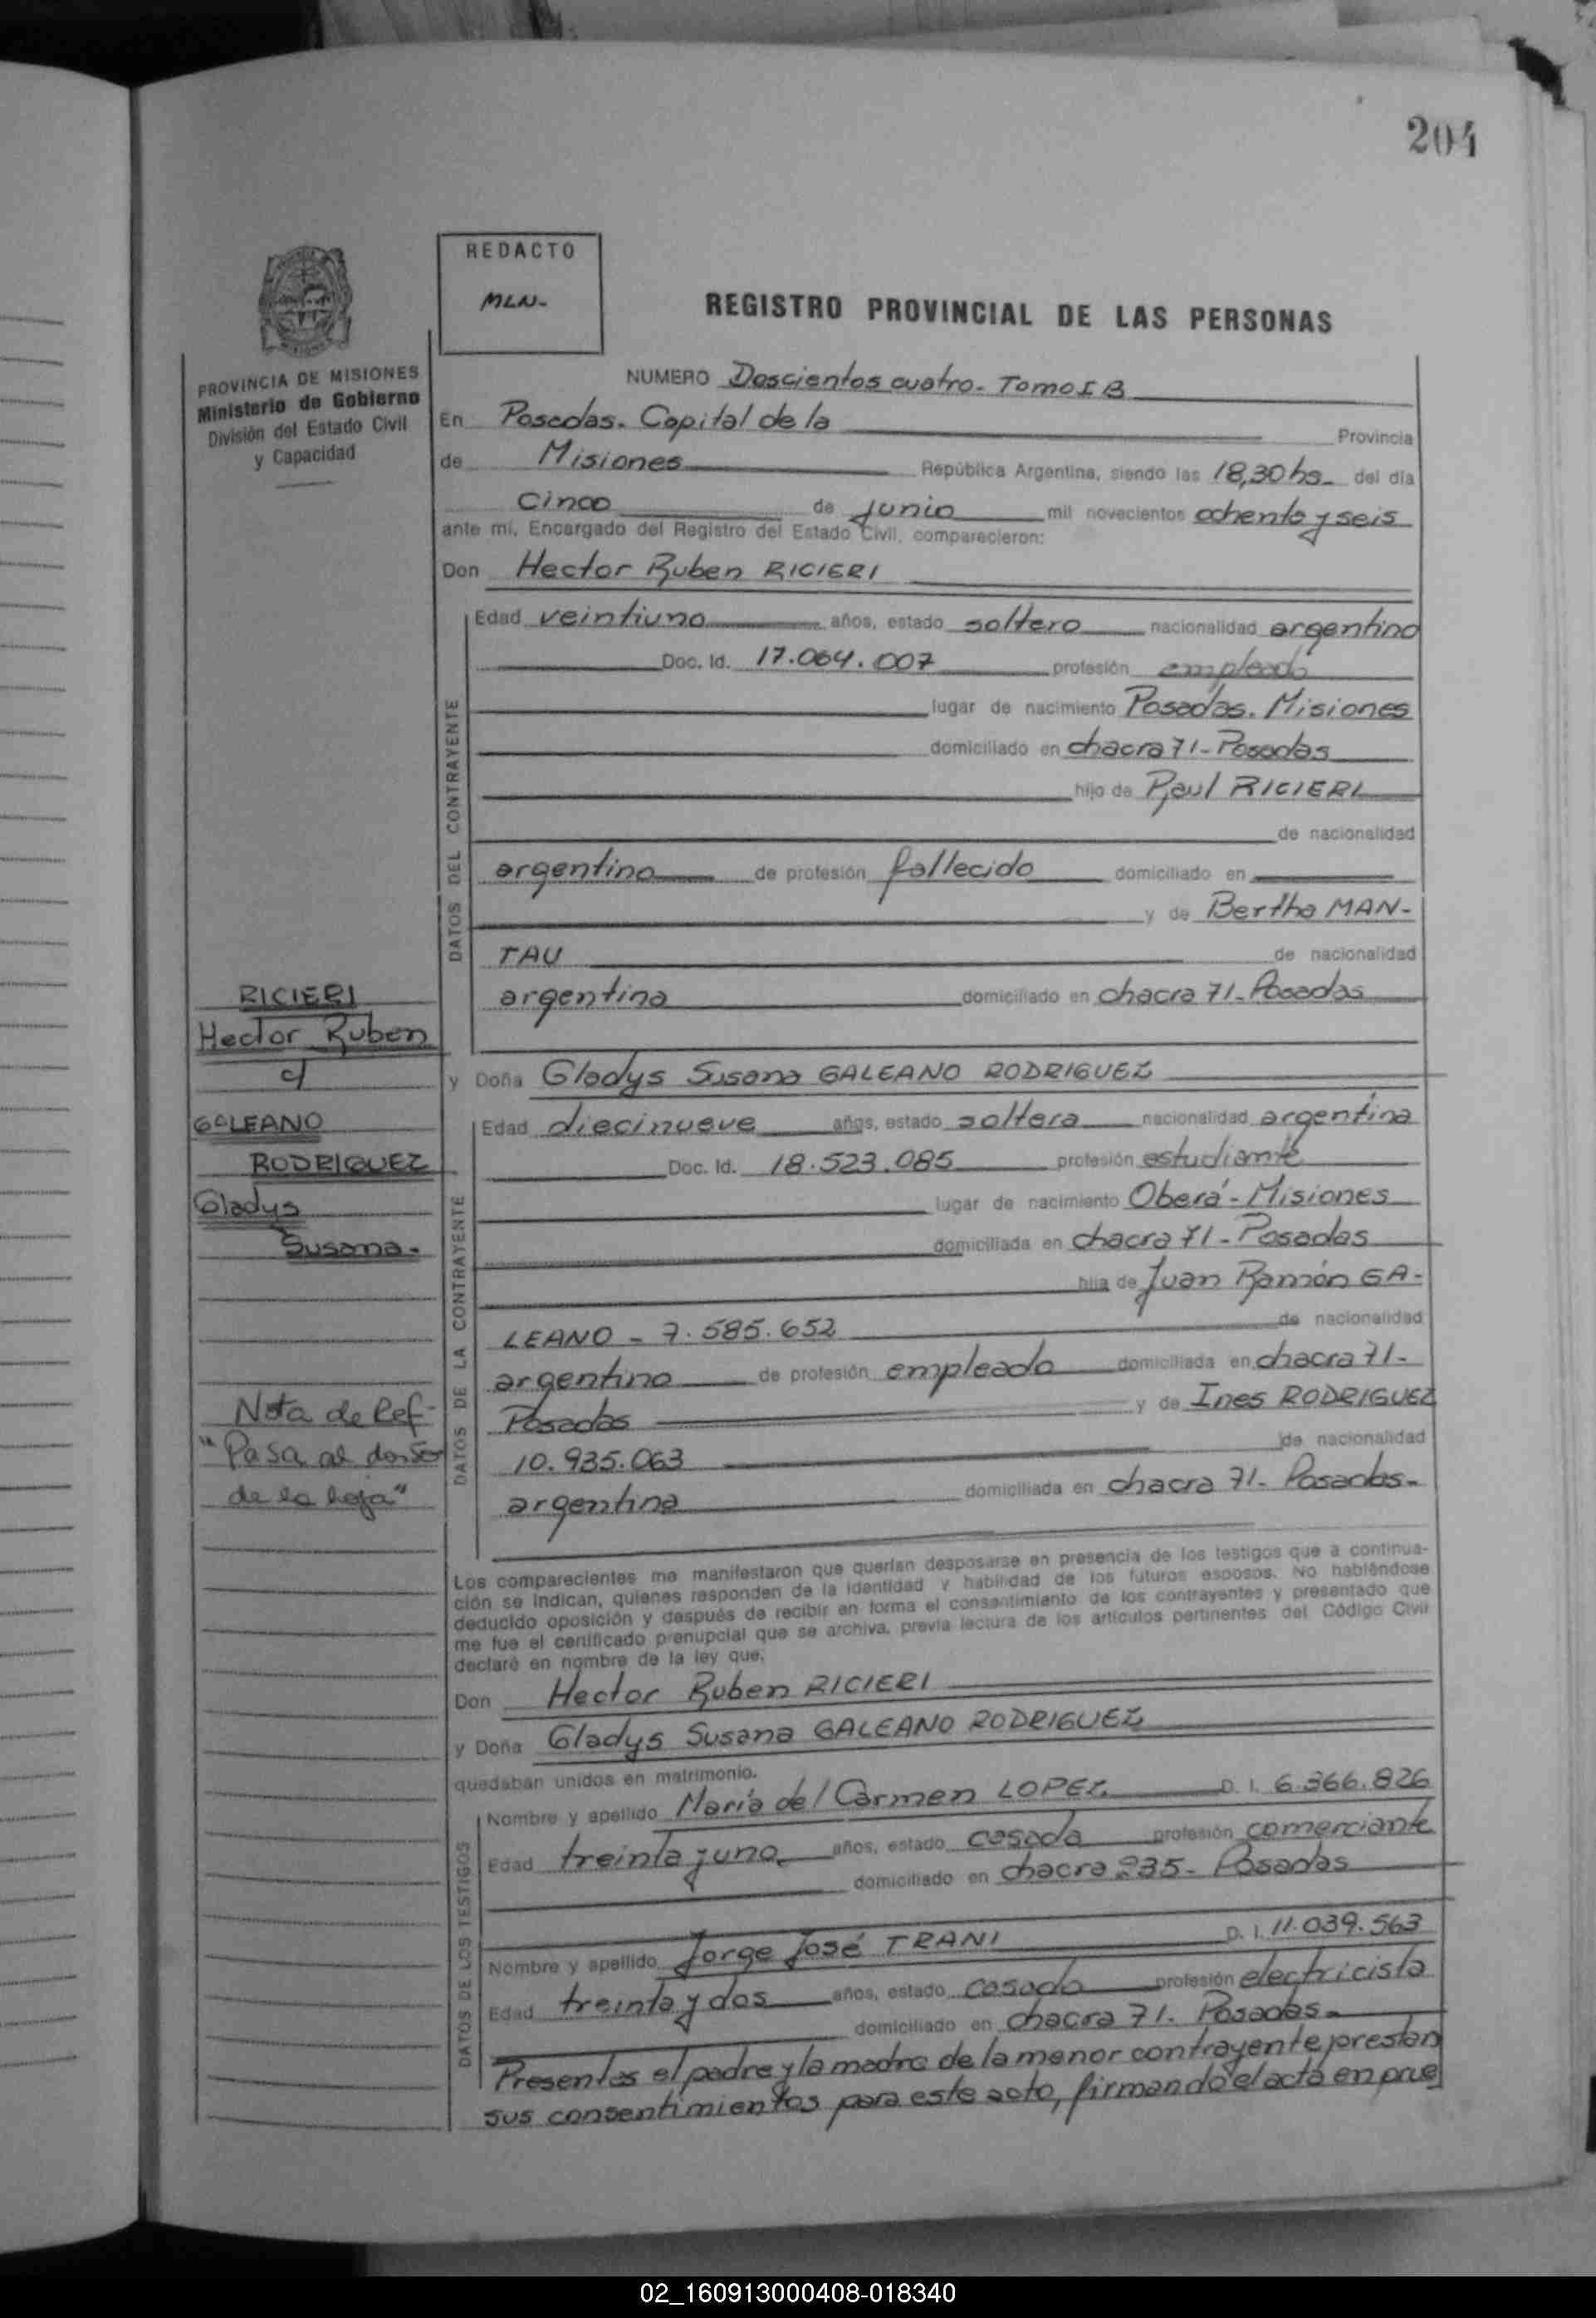 204
REDACTO
MLN-
REGISTRO PROVINCIAL DE LAS PERSONAS
PROVINCIA DE MISIONES
Ministerio de Gobierno
División del Estado Civil
y Capacidad
NUMERO Doscientos cuatro- Tomo I B
En Posadas. Capital de la Provincia
de Misiones República Argentina, siendo las 18,30 hs. del día
Cinco de junio mil novecientos ochenta y seis
ante mí, Encargado del Registro del Estado Civil, comparecieron:
Don Hector Ruben RICIERI
DATOS DEL CONTRAYENTE
Edad veintiuno años, estado soltero nacionalidad argentino
Doc. Id. 17.064.007 profesión empleado
lugar de nacimiento Posadas. Misiones
domiciliado en chacra 71- Posadas
hijo de Raul RICIERI
de nacionalidad
argentino de profesión fallecido domiciliado en
y de Bertha MAN-
TAU de nacionalidad
argentina domiciliado en chacra 71- Posadas
RICIERI
Hector Ruben
c/
GALEANO
RODRIGUEZ
Gladys
Susana.
y Doña Gladys Susana GALEANO RODRIGUEZ
DATOS DE LA CONTRAYENTE
Edad diecinueve años, estado soltera nacionalidad argentina
Doc. Id. 18.523.085 profesión estudiante
lugar de nacimiento Oberá - Misiones
domiciliada en chacra 71- Posadas
hija de Juan Ramón GA-
LEANO - 7.585.652 de nacionalidad
argentino de profesión empleado domiciliada en chacra 71-
Posadas y de Ines RODRIGUEZ
10.935.063 de nacionalidad
argentina domiciliada en chacra 71- Posadas-
Nota de Ref-
"Pasa al dorso
de la hoja"
Los comparecientes me manifestaron que querían desposarse en presencia de los testigos que a continua-
ción se indican, quienes responden de la identidad y habilidad de los futuros esposos. No habiéndose
deducido oposición y después de recibir en forma el consentimiento de los contrayentes y presentado que
me fue el certificado prenupcial que se archiva, previa lectura de los artículos pertinentes del Código Civil
declaré en nombre de la ley que:
Don Hector Ruben RICIERI
y Doña Gladys Susana GALEANO RODRIGUEZ
quedaban unidos en matrimonio.
DATOS DE LOS TESTIGOS
Nombre y apellido María del Carmen LOPEZ D. I. 6.366.826
Edad treinta y una años, estado casada profesión comerciante
domiciliado en chacra 235- Posadas
Nombre y apellido Jorge José TRANI D. I. 11.039.563
Edad treinta y dos años, estado casado profesión electricista
domiciliado en chacra 71. Posadas-
Presentes el padre y la madre de la menor contrayente prestan
sus consentimientos para este acto, firmando el acta en prue
02_160913000408-018340